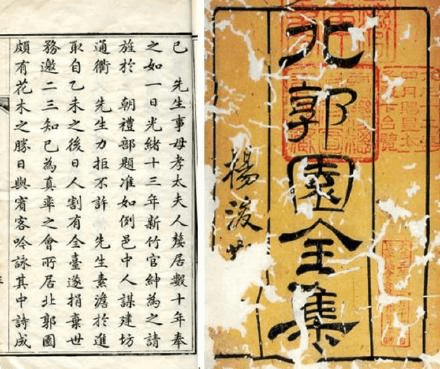 北郭園全集
楊浚
已　先生事母孝太夫人嫠居數十年奉
之如一日光緒十三年新竹官紳為之請
旌於　朝禮部題准如例邑中人謀建坊
通衢　先生力拒不許　先生素澹於進
取自乙未之後日人割有全臺遂捐棄世
務邀二三知己為真率之會所居北郭園
頗有花木之勝日與賓客吟詠其中詩成